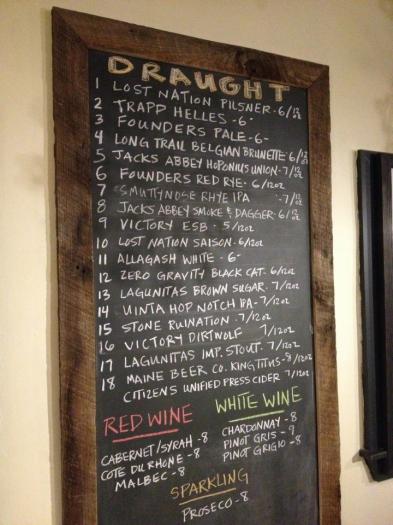 DRAUGHT
1 LOST NATION PILSNER - 6/12oz
2 TRAPP HELLES - 6-
3 FOUNDERS PALE - 6-
4 LONG TRAIL BELGIAN BRUNETTE 6/12oz
5 JACKS ABBEY HOPONIUS UNION - 7/12oz
6 FOUNDERS RED RYE - 6/12oz
7 SMUTTYNOSE RHYE IPA - 7/12oz
8 JACKS ABBEY SMOKE & DAGGER - 6/12oz
9 VICTORY ESB - 5/12oz
10 LOST NATION SAISON - 6/12oz
11 ALLAGASH WHITE - 6-
12 ZERO GRAVITY BLACK CAT - 6/12oz
13 LAGUNITAS BROWN SUGAR - 7/12oz
14 UINTA HOP NOTCH IPA - 7/12oz
15 STONE RUINATION - 7/12oz
16 VICTORY DIRTWOLF 7/12oz
17 LAGUNITAS IMP. STOUT - 7/12oz
18 MAINE BEER CO. KING TITUS - 8/12oz
CITIZENS UNIFIED PRESS CIDER 7/12oz
RED WINE
CABERNET/SYRAH - 8
COTE DU RHONE - 8
MALBEC - 8
WHITE WINE
CHARDONNAY - 8
PINOT GRIS - 9
PINOT GRIGIO - 8
SPARKLING
PROSECO - 8